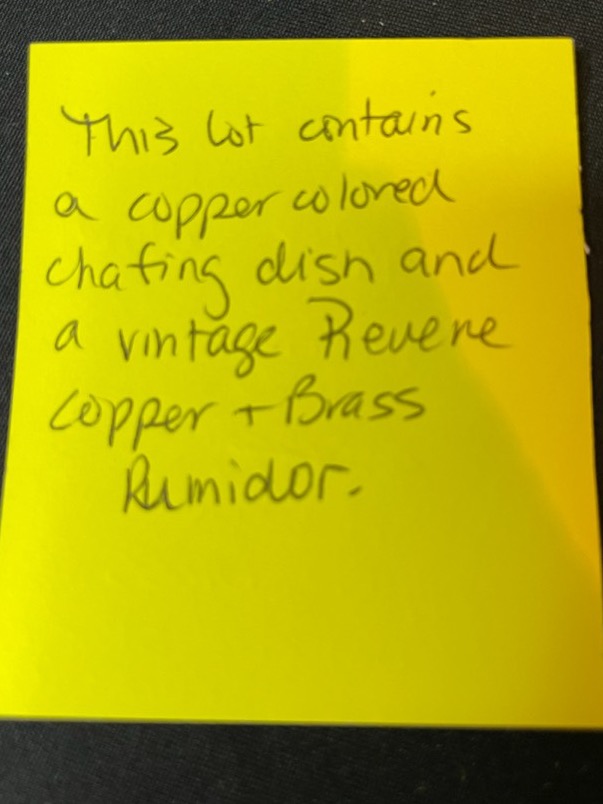 This lot contains
a copper colored
chafing dish and
a vintage Revere
copper + Brass
Rumidor.